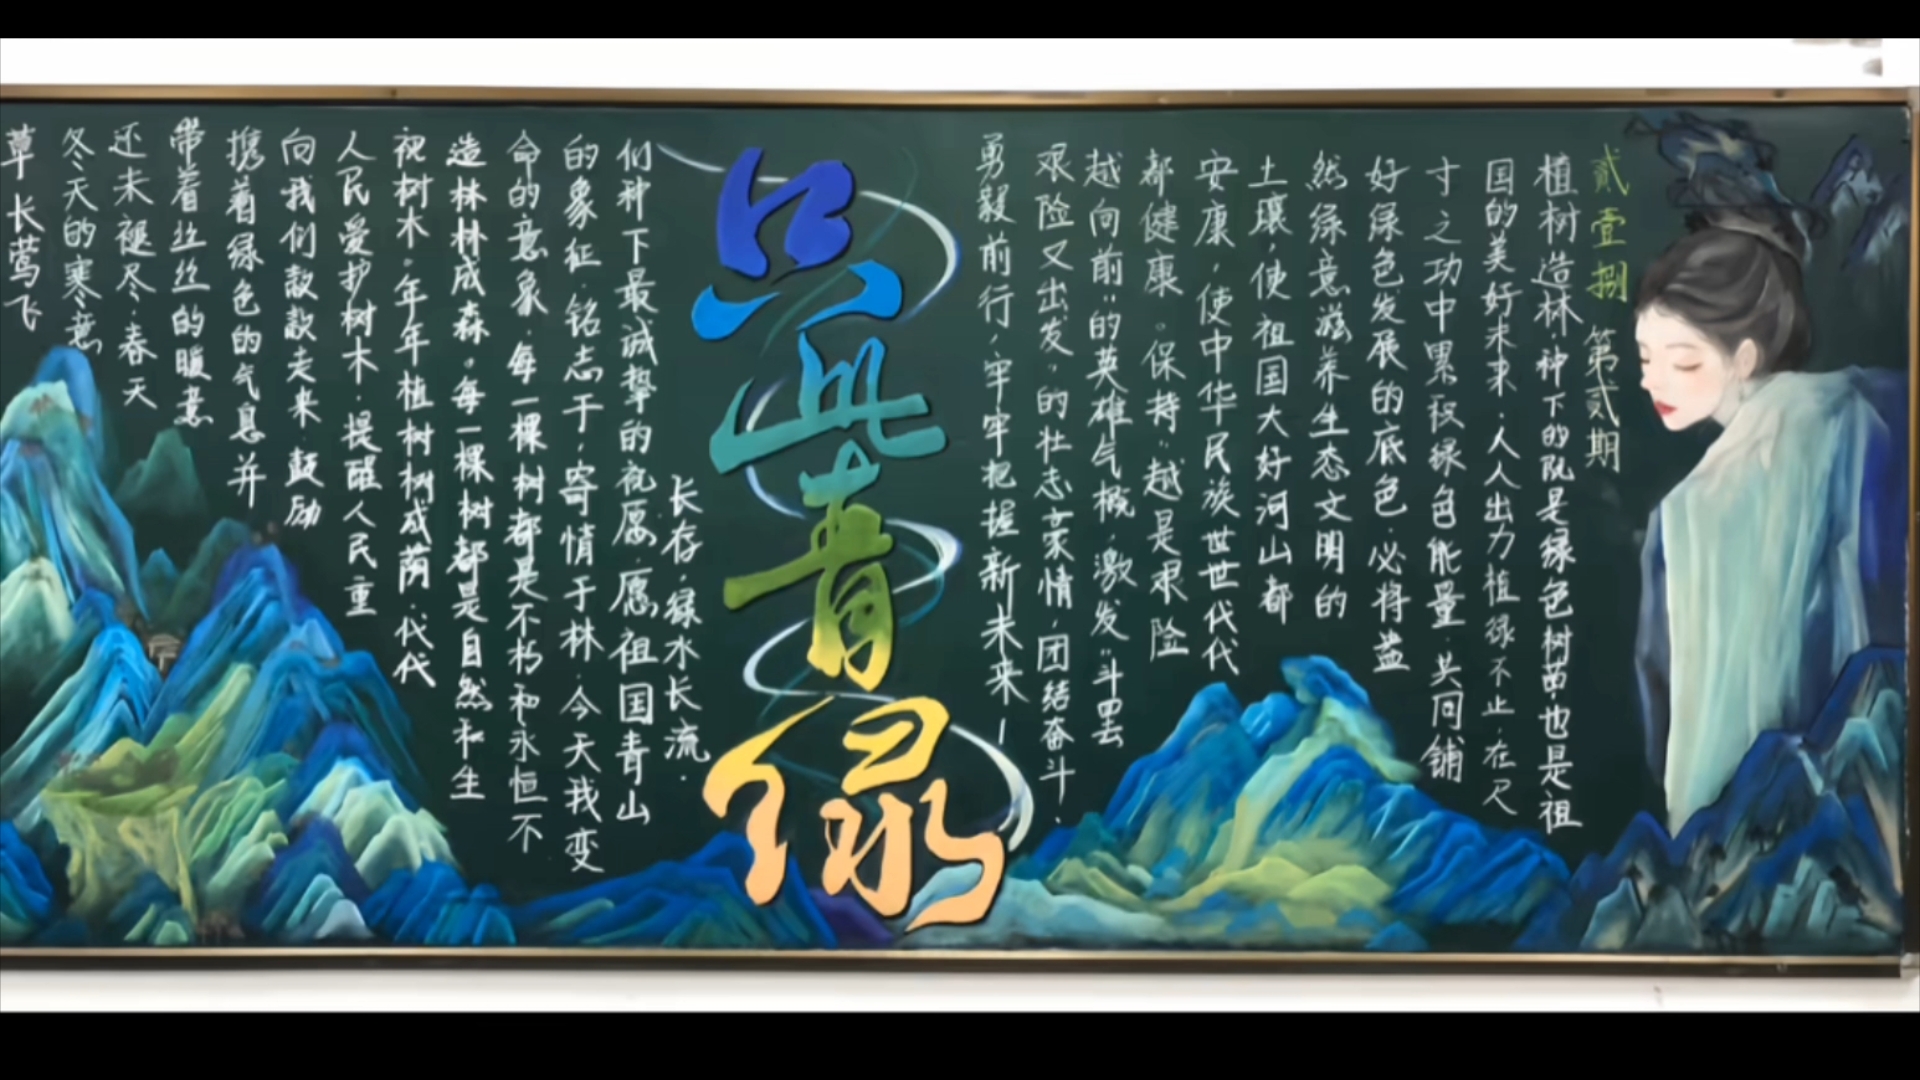 贰壹捌 第贰期
植树造林,种下的既是绿色树苗,也是祖
国的美好未来.人人出力植绿不止,在尺
寸之功中累积绿色能量.共同铺
好绿色发展的底色,必将盎
然绿意滋养生态文明的
土壤,使祖国大好河山都
安康,使中华民族世世代代
都健康。保持"越是艰险
越向前"的英雄气概,激发"斗罢
艰险又出发"的壮志豪情,团结奋斗,
勇毅前行,牢牢把握新未来!
只此青绿
草长莺飞
冬天的寒意
还未褪尽,春天
带着丝丝的暖意
携着绿色的气息并
向我们款款走来,鼓励
人民爱护树木,提醒人民重
视树木。年年植树树成荫,代代
造林林成森。每一棵树都是自然和生
命的意象,每一棵树都是不朽和永恒不
的象征.铭志于,寄情于林.今天我变
们种下最诚挚的祝愿,愿祖国青山
长存,绿水长流.